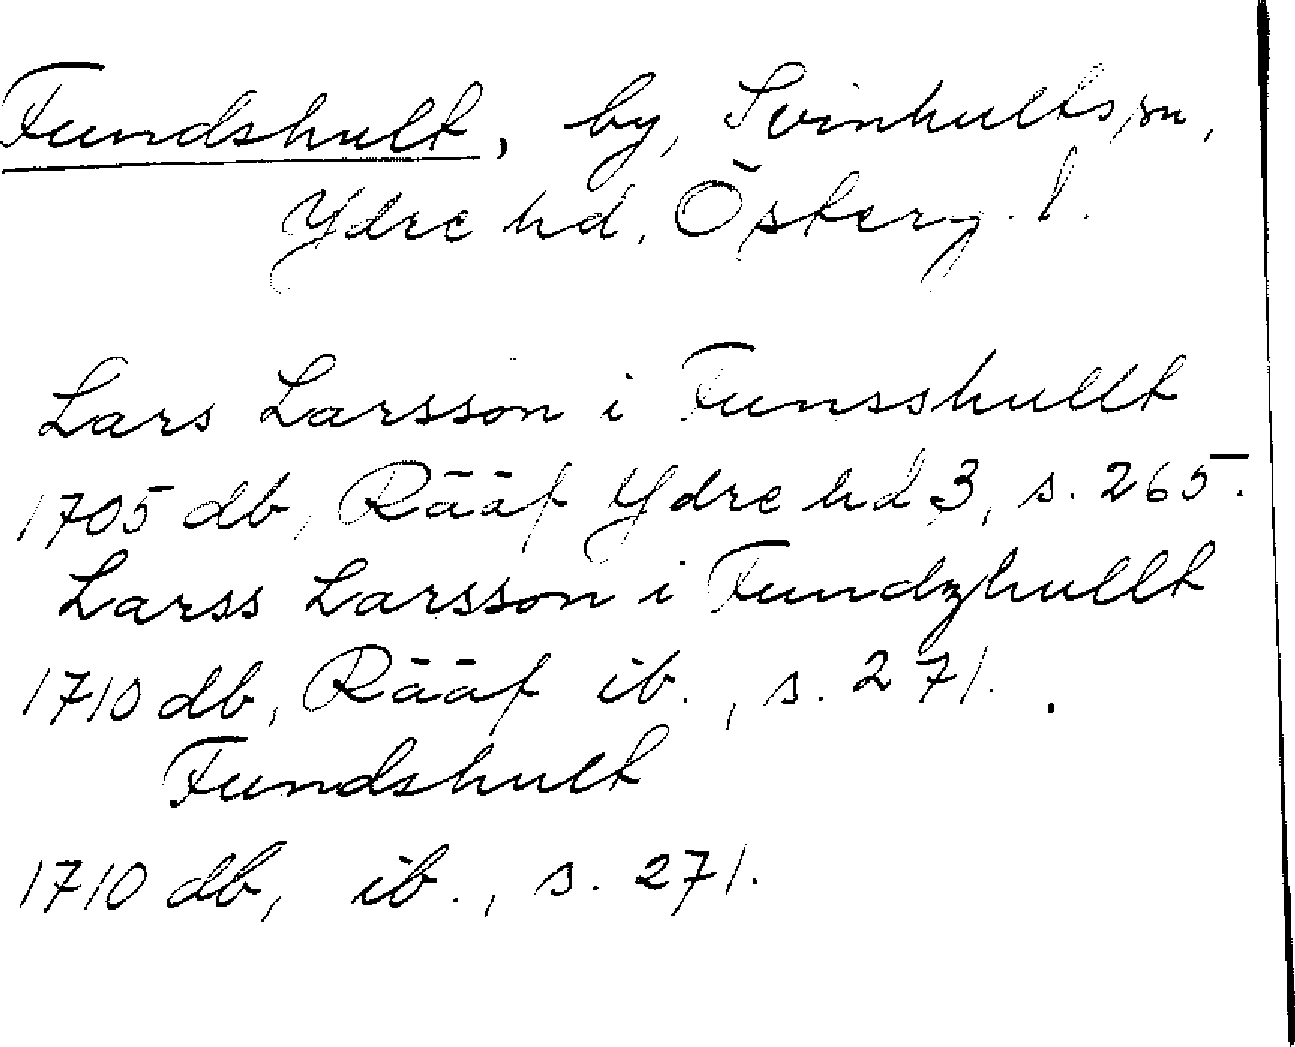 Fundshult, by, Svinhults sn,
Ydre hd, Österg. l.
Lars Larsson i Funsshullt
1705 db, Rääf Ydre hd 3, s. 265.
Larss Larsson i Fundzhullt
1710 db, Rääf ib., s. 271.
Fundshult
1710 db, ib., s. 271.